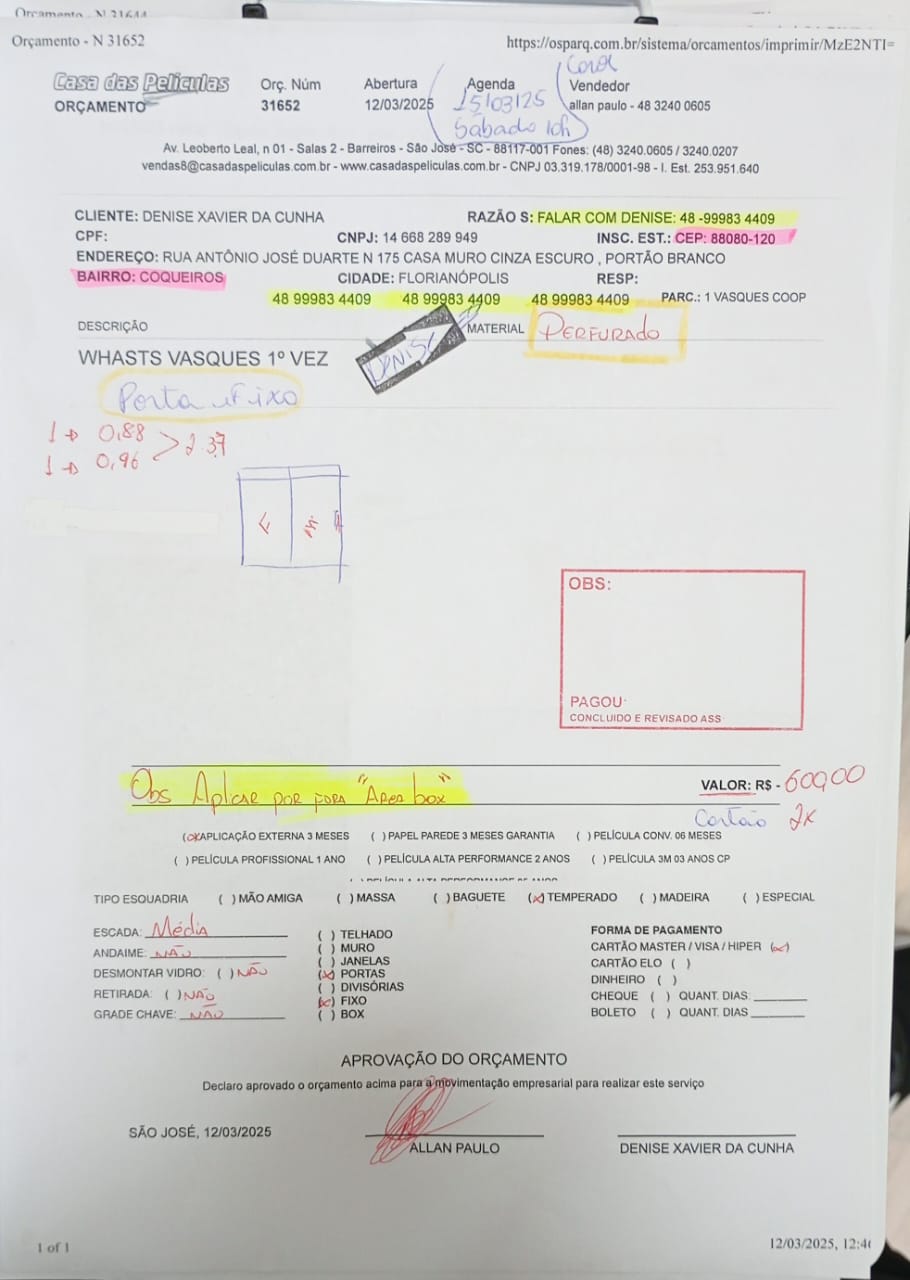 Orçamento - N 31644
Orçamento - N 31652
https://osparq.com.br/sistema/orcamentos/imprimir/MzE2NTI=
Casa das Películas
ORÇAMENTO
Orç. Núm
31652
Abertura
12/03/2025
Agenda
15/03/25
Sábado 10h
Vendedor
allan paulo - 48 3240 0605
Av. Leoberto Leal, n 01 - Salas 2 - Barreiros - São José - SC - 88117-001 Fones: (48) 3240.0605 / 3240.0207
vendas8@casadaspeliculas.com.br - www.casadaspeliculas.com.br - CNPJ 03.319.178/0001-98 - I. Est. 253.951.640
CLIENTE: DENISE XAVIER DA CUNHA RAZÃO S: FALAR COM DENISE: 48 -99983 4409
CPF: CNPJ: 14 668 289 949 INSC. EST.: CEP: 88080-120
ENDEREÇO: RUA ANTÔNIO JOSÉ DUARTE N 175 CASA MURO CINZA ESCURO , PORTÃO BRANCO
BAIRRO: COQUEIROS CIDADE: FLORIANÓPOLIS RESP:
48 99983 4409 48 99983 4409 48 99983 4409 PARC.: 1 VASQUES COOP
DESCRIÇÃO MATERIAL PERFURADO
WHASTS VASQUES 1º VEZ DENISE
Porta e Fixo
1 → 0,88
1 → 0,96 > 2.37
F M
OBS:
PAGOU:
CONCLUIDO E REVISADO ASS
Obs Aplicar por fora "Área box"
VALOR: R$ - 600,00
Cartão 2x
(x)APLICAÇÃO EXTERNA 3 MESES ( ) PAPEL PAREDE 3 MESES GARANTIA ( ) PELÍCULA CONV. 06 MESES
( ) PELÍCULA PROFISSIONAL 1 ANO ( ) PELÍCULA ALTA PERFORMANCE 2 ANOS ( ) PELÍCULA 3M 03 ANOS CP
TIPO ESQUADRIA ( ) MÃO AMIGA ( ) MASSA ( ) BAGUETE (x) TEMPERADO ( ) MADEIRA ( ) ESPECIAL
ESCADA: Média
ANDAIME: NÃO
DESMONTAR VIDRO: ( ) NÃO
RETIRADA: ( ) NÃO
GRADE CHAVE: NÃO
( ) TELHADO
( ) MURO
( ) JANELAS
(x) PORTAS
( ) DIVISÓRIAS
(x) FIXO
( ) BOX
FORMA DE PAGAMENTO
CARTÃO MASTER / VISA / HIPER (x)
CARTÃO ELO ( )
DINHEIRO ( )
CHEQUE ( ) QUANT. DIAS:
BOLETO ( ) QUANT. DIAS
APROVAÇÃO DO ORÇAMENTO
Declaro aprovado o orçamento acima para a movimentação empresarial para realizar este serviço
SÃO JOSÉ, 12/03/2025
ALLAN PAULO
DENISE XAVIER DA CUNHA
1 of 1
12/03/2025, 12:46